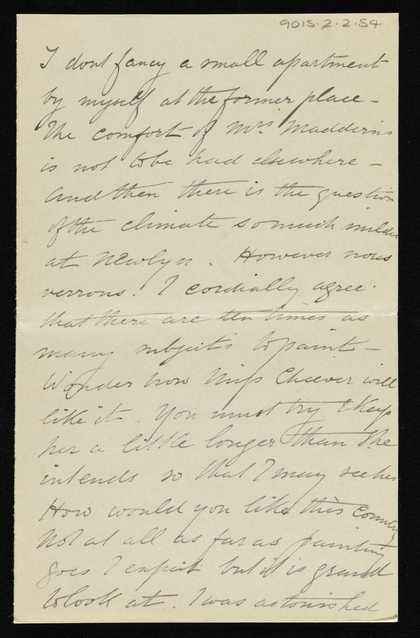 9015.2.2.54
I dont fancy a small apartment
by myself at the former place -
The comfort of Mrs Maddern's
is not to be had elsewhere -
and then there is the question
of the climate so much milder
at Newlyn. However nous
verrons! I cordially agree
that there are ten times as
many subjects to paint -
Wonder how Miss Cheever will
like it. You must try & keep
her a little longer than she
intends so that I may see her
How would you like this country
Not at all as far as painting
goes I expect but it is grand
to look at. I was astonished